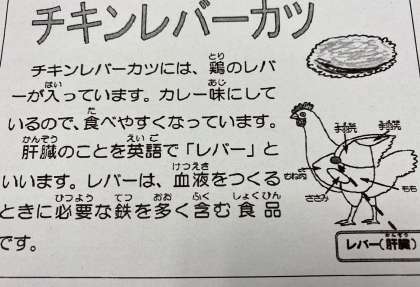 チキンレバーカツ
チキンレバーカツには、鶏のレバ
ーが入っています。カレー味にして
いるので、食べやすくなっています。
肝臓のことを英語で「レバー」と
いいます。レバーは、血液をつくる
ときに必要な鉄を多く含む食品
です。
むね肉
ささみ
もも
レバー(肝臓)